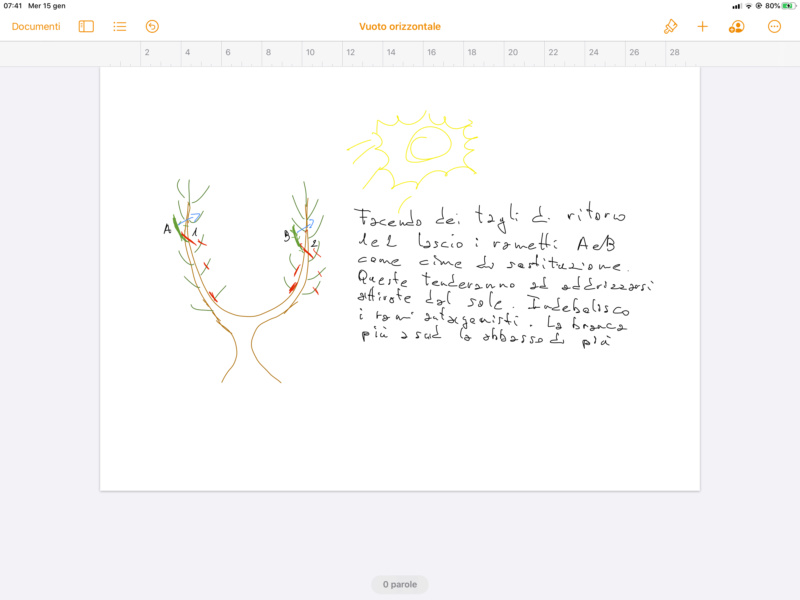 07:41 Mer 15 gen
80%
Documenti
Vuoto orizzontale
2 4 6 8 10 12 14 16 18 20 22 24 26 28
A 1
B 2
Facendo dei tagli di ritorno
1 e 2 lascio i rametti A e B
come cime di sostituzione.
Queste tenderanno ad addrizzarsi
attirate dal sole. Indebolisco
i rami antagonisti. La branca
più a sud la abbasso di più
0 parole